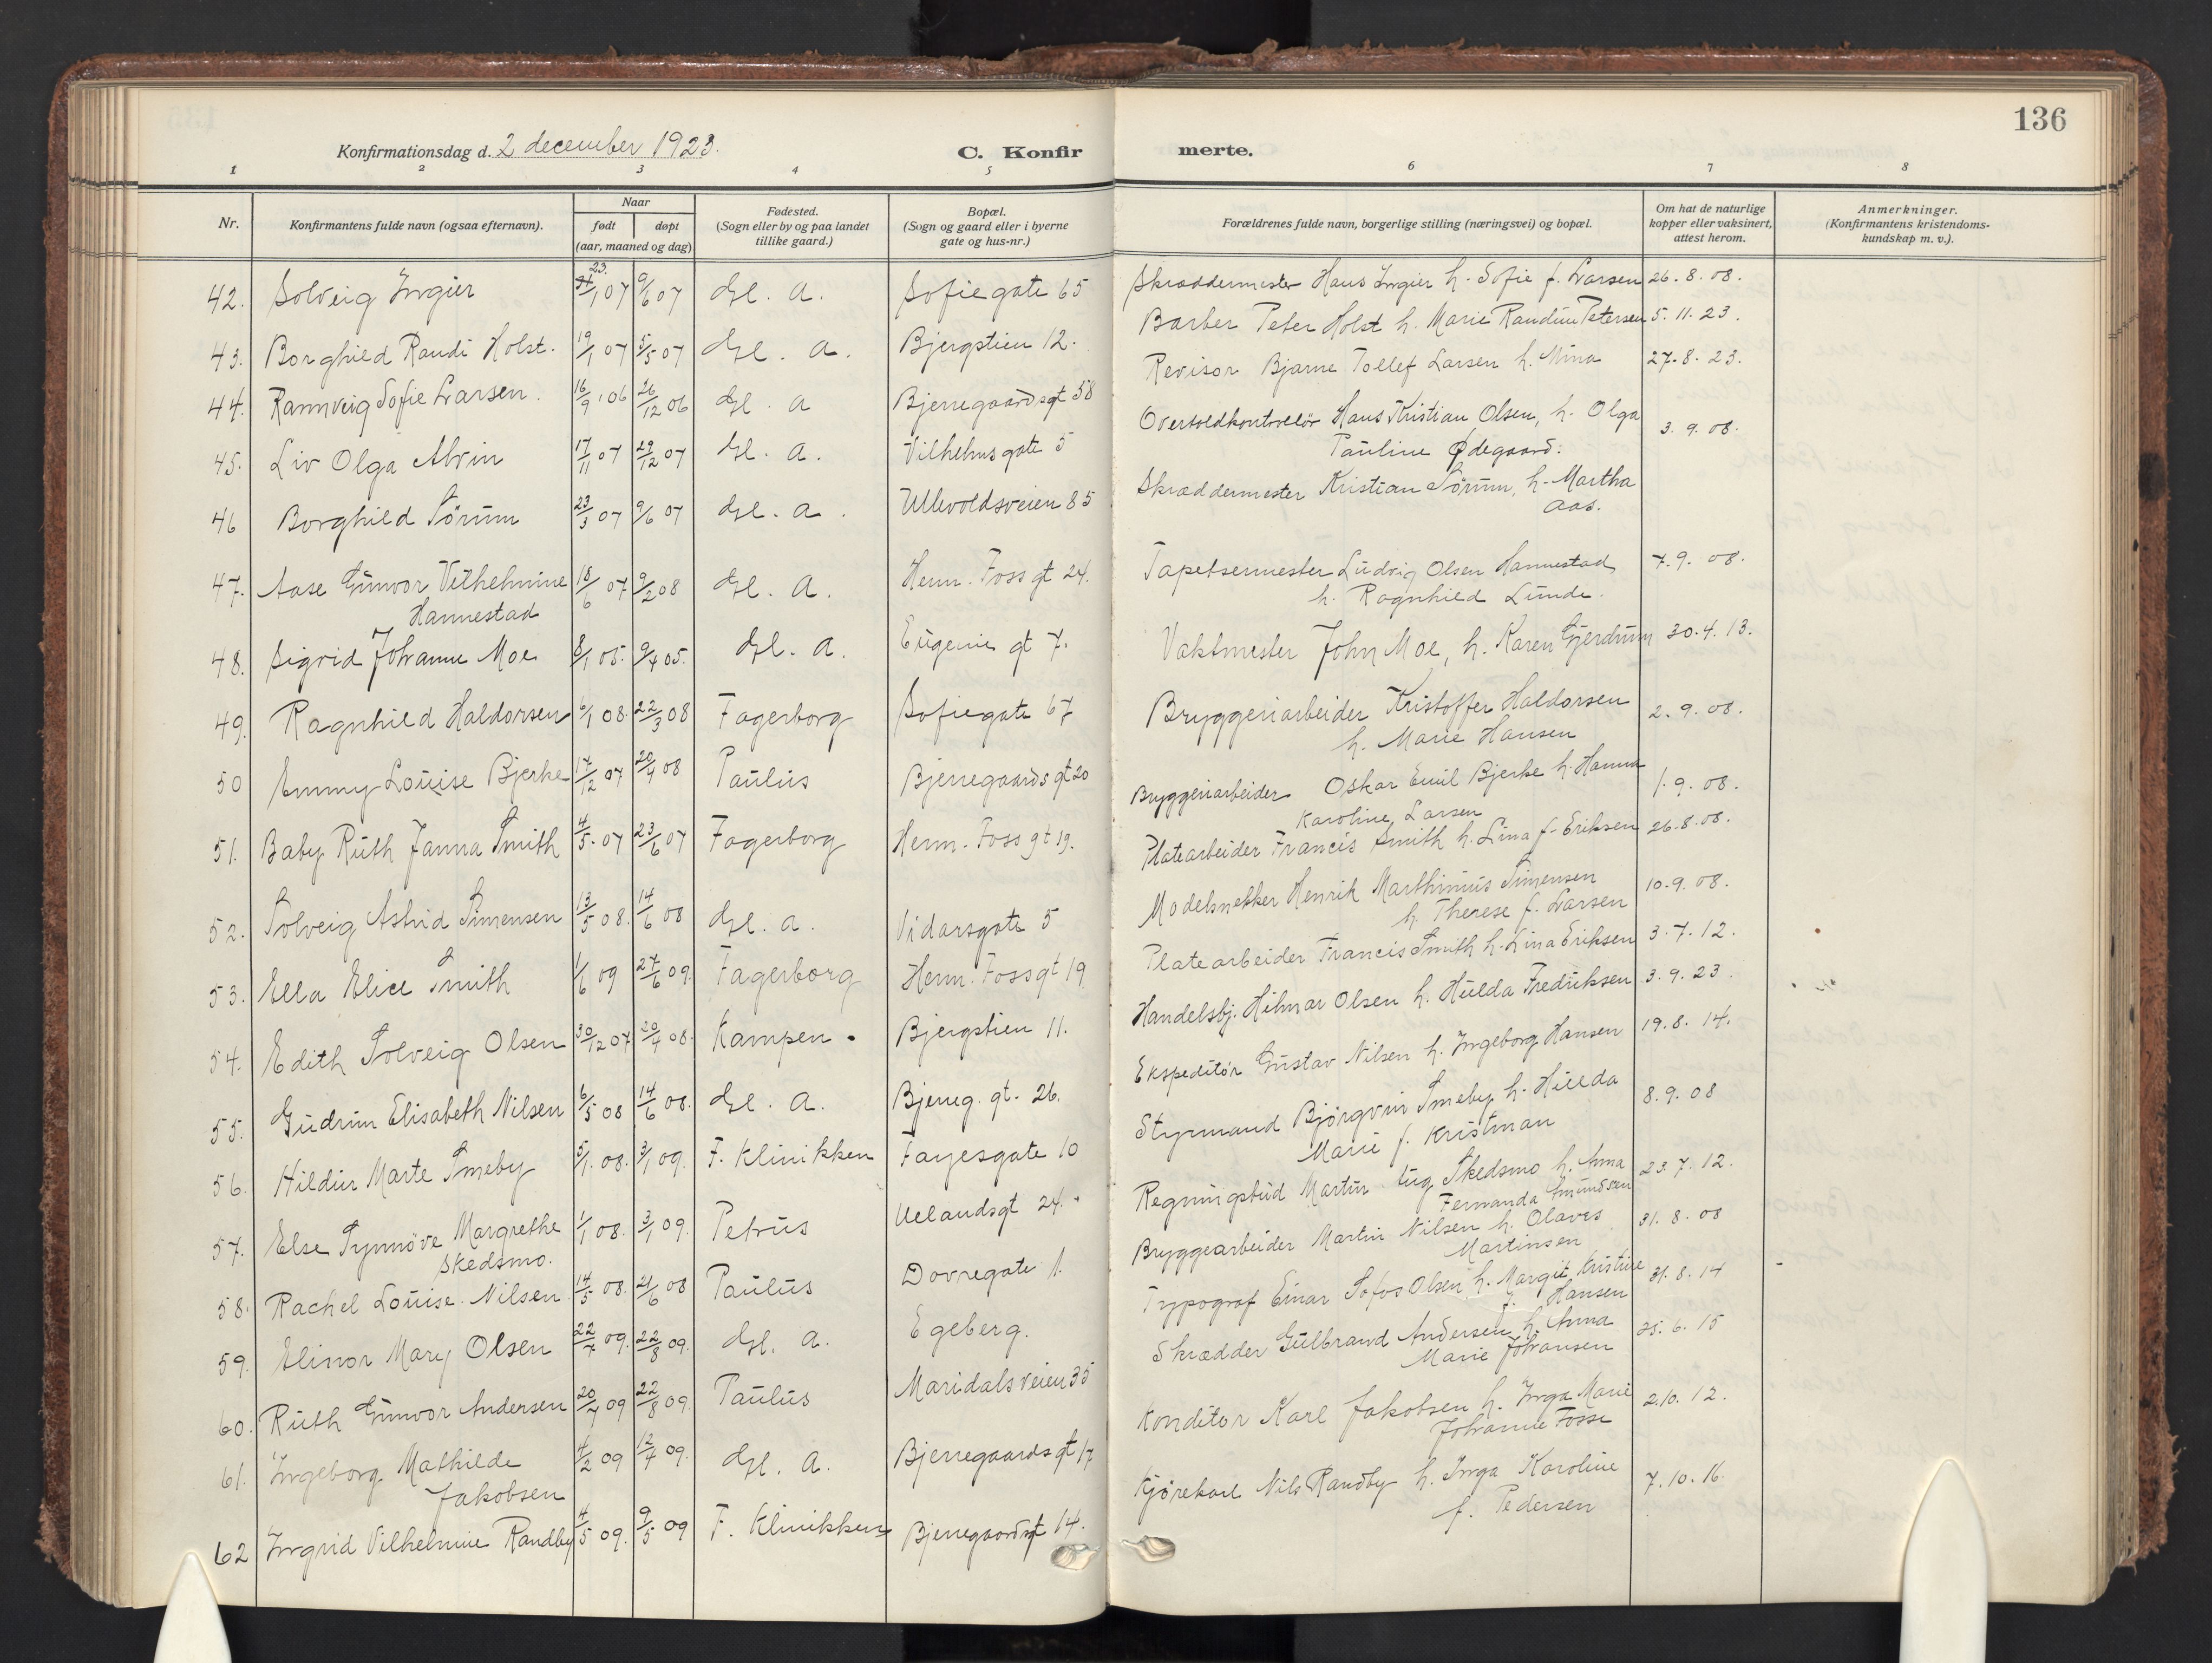 136
Konfirmationsdag d. 2 december 1923.
C. Konfir merte.
1 2 3 4 5 6 7 8
Nr.
Konfirmantens fulde navn (ogsaa efternavn).
Naar
født døpt
(aar, maaned og dag)
Fødested.
(Sogn eller by og paa landet
tillike gaard.)
Bopæl.
(Sogn og gaard eller i byerne
gate og hus-nr.)
Forældrenes fulde navn, borgerlige stilling (næringsvei) og bopæl.
Om hat de naturlige
kopper eller vaksinert,
attest herom.
Anmerkninger.
(Konfirmantens kristendoms-
kundskap m. v.).
23.
42. Solveig Ingier 31/1 07 9/6 07 Gl. A. Sofiegate 65 Skræddermester Hans Ingier h. Sofie f. Larsen 26.8.08.
43. Borghild Randi Holst. 19/1 07 5/5 07 Gl. A. Bjergstien 12. Barber Peter Holst h. Marie Randine Petersen 5.11.23.
44. Rannveig Sofie Larsen. 16/9 06 26/12 06 Gl. A Bjerregaardsgt 58 Revisor Bjarne Tollef Larsen h. Mina 27.8.23.
45. Liv Olga Alvin 17/11 07 29/12 07 Gl. A. Vilhelmsgate 5 Overtoldkontrollør Hans Kristian Olsen, h. Olga
Pauline Ødegaard. 3.9.08.
46 Borghild Sörum 23/3 07 9/6 07 Gl. A. Ullevoldsveien 85 Skræddermester Kristian Sörum, h. Martha
Aas.
47. Aase Gunvor Vilhelmine 18/6 07 9/2 08 Gl. A. Herm. Foss gt 24. Tapetsermester Ludvig Olsen Hannestad 7.9.08.
Hannestad h. Ragnhild Lunde.
48. Sigrid Johanne Moe 8/1 05. 9/4 05. Gl. A. Eugenie gt 7. Vaktmester John Moe, h. Karen Gjerdrum 30.4.13.
49. Ragnhild Haldorsen 6/1 08. 22/3 08 Fagerborg Sofiegate 67 Bryggeriarbeider Kristoffer Haldorsen
h. Marie Hansen 2.9.08.
50 Emmy Louise Bjerke 17/12 07 20/4 08 Paulus Bjerregaards gt 20 Bryggeriarbeider Oskar Emil Bjerke h. Hanna
Karoline Larsen 1.9.08.
51. Baby Ruth Janna Smith 4/5. 07 23/6 07 Fagerborg Herm. Foss gt 19. Platearbeider Francis Smith h. Lina f. Eriksen 26.8.08.
52. Solveig Astrid Simensen 13/5 08. 14/6 08 Gl. A. Vidarsgate 5 Modelsnekker Henrik Marthinius Simensen
h. Therese f. Larsen 10.9.08.
53. Ella Elice Smith 1/6 09 27/6 09. Fagerborg Herm. Foss gt 19 Platearbeider Francis Smith h. Lina Eriksen 3.7.12.
54. Edith Solveig Olsen 30/12 07 20/4 08. Kampen. Bjergstien 11. Handelsbj. Hilmar Olsen h. Hulda Fredriksen 3.9.23.
55. Gudrun Elisabeth Nilsen 6/5 08 14/6 08. Gl. A. Bjerreg. gt. 26. Ekspeditör Gustav Nilsen h. Ingeborg Hansen 19.8.14.
56. Hildur Marte Smeby 5/1. 08. 3/1 09. F. Klinikken Fayesgate 10 Styrmand Björgvin Smeby h. Hulda
Marie f. Kristman 8.9.08
57. Else Synnöve Margrethe 1/1 08. 3/1 09. Petrus Uelandsgt 24. Regningsbud Martin Skedsmo h. Anna
Skedsmo. Fernanda Amundsen 23.7.12.
58. Rachel Louise Nilsen 14/5 08. 21/6 08 Paulus Dovregate 1. Bryggearbeider Martin Nilsen h. Olaves
Martinsen 31.8.08
59. Elinor Mary Olsen 22/7 09. 22/8 09. Gl. A. Egeberg. Typograf Einar Sofos Olsen h. Margit Kristine
f. Hansen 31.8.14
60. Ruth Gunvor Andersen 20/7 09 22/8 09. Paulus Maridalsveien 35 Skrædder Gulbrand Andersen h. Anna
Marie Johansen 25.6.15
61. Ingeborg Mathilde 4/2 09 12/4 09. Gl. A. Bjerregaards gt 17 Konditor Karl Jakobsen h. Inga Marie
Jakobsen Johanne Fosse 2.10.12.
62 Ingrid Vilhelmine Randby 4/5 09. 9/5 09 F. Klinikken Bjerregaardsgt 14. Kjörekarl Nils Randby h. Inga Karoline
f. Pedersen 7.10.16.